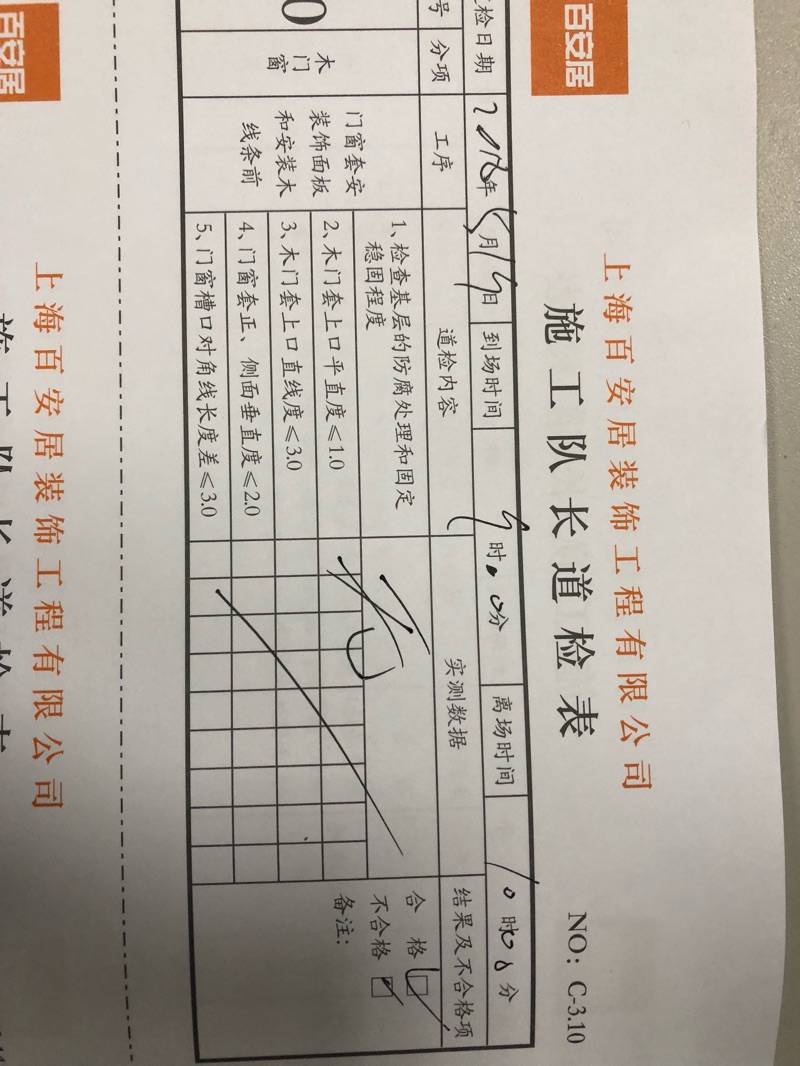 百安居
上海百安居装饰工程有限公司
施工队长道检表
NO：C-3.10
检日期
年 月 日
到场时间
9时00分
离场时间
10时00分
号
分项
工序
道检内容
实测数据
结果及不合格项
0
木门窗
门窗套安
装饰面板
和安装木
线条前
1、检查基层的防腐处理和固定
稳固程度
2、木门套上口平直度≤1.0
3、木门套上口直线度≤3.0
4、门窗套正、侧面垂直度≤2.0
5、门窗槽口对角线长度差≤3.0
合 格
不合格
备注：
百安居
上海百安居装饰工程有限公司
施工队长道检表